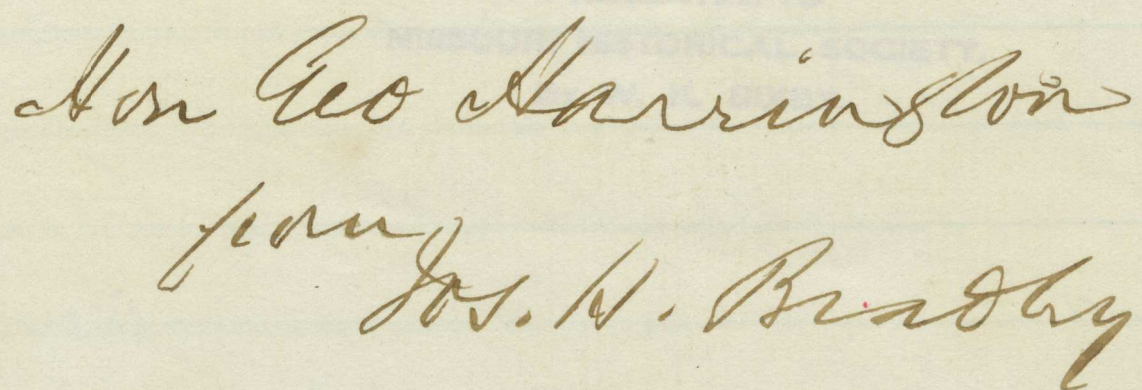 MISSOURI HISTORICAL SOCIETY,
Hon Geo Harrington
from
Jos. H. Bradley